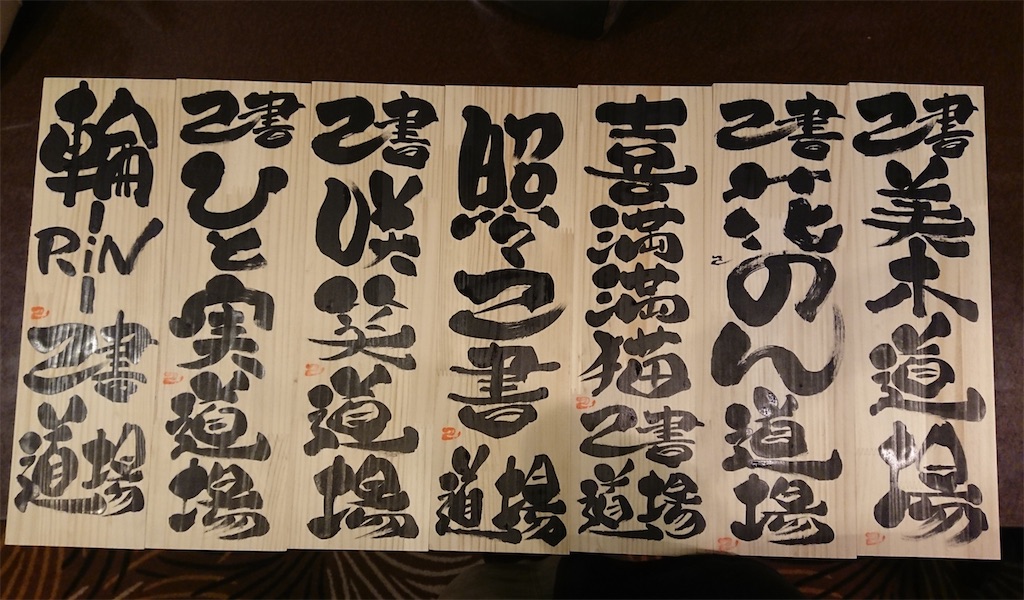 己書美木道場
己書花のん道場
喜満満猫己書道場
照々己書道場
己書咲笑道場
己書ひと実道場
輪-RiN-己書道場